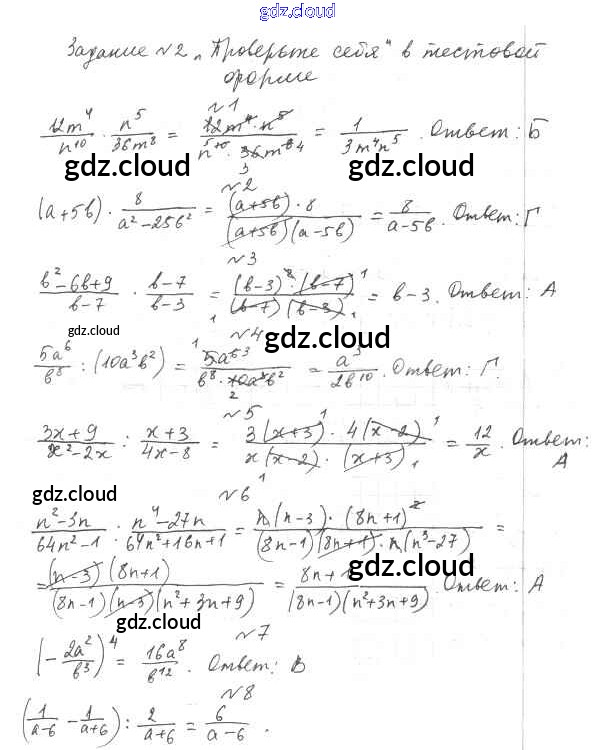 gdz.cloud
Задание №2 „Проверьте себя" в тестовой
форме
№1
12m⁴/n¹⁰ · n⁵/36m⁸ = 12m⁴·n⁵/n¹⁰·36m⁸ = 1/3m⁴n⁵. Ответ: Б
gdz.cloud gdz.cloud
№2
(a+5b) · 8/a²−25b² = (a+5b)·8/(a+5b)(a−5b) = 8/a−5b. Ответ: Г
№3
b²−6b+9/b−7 · b−7/b−3 = (b−3)²·(b−7)/(b−7)(b−3) = b−3. Ответ: А
gdz.cloud gdz.cloud
№4
5a⁶/b⁸ : (10a³b²) = 5a⁶/b⁸·10a³b² = a³/2b¹⁰. Ответ: Г.
№5
3x+9/x²−2x : x+3/4x−8 = 3(x+3)·4(x−2)/x(x−2)·(x+3) = 12/x. Ответ:
А
gdz.cloud gdz.cloud
№6
n²−3n/64n²−1 · n⁴−27n/64n²+16n+1 = n(n−3)·(8n+1)²/(8n−1)(8n+1)·n(n³−27) =
= (n−3)(8n+1)/(8n−1)(n−3)(n²+3n+9) = 8n+1/(8n−1)(n²+3n+9). Ответ: А
gdz.cloud gdz.cloud
№7
(−2a²/b³)⁴ = 16a⁸/b¹². Ответ: В
№8
(1/a−6 − 1/a+6) : 2/a+6 = 6/a−6.
gdz.cloud gdz.cloud